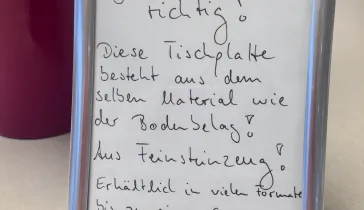 richtig!
Diese Tischplatte
besteht aus dem
selben Material wie
der Bodenbelag!
Aus Feinsteinzeug!
Erhältlich in vielen Formate
bis zu